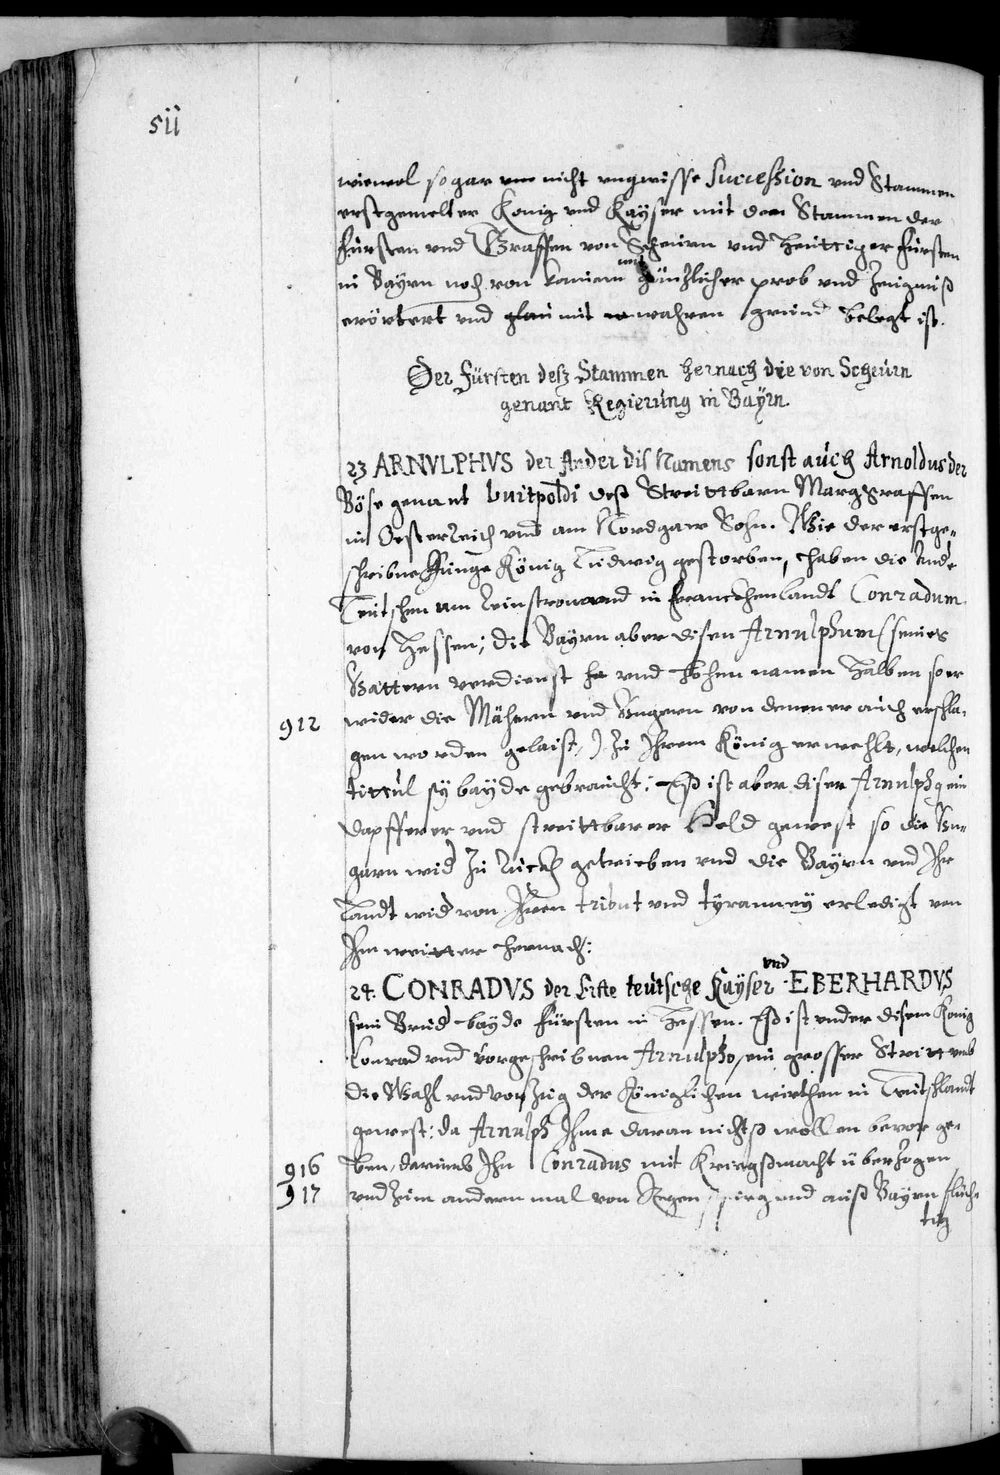 511
wiewol sogar vm nicht vngwisse Succession vnd Stammen
erstgemelter König vnd Kayser mit dem Stammen der
Fürsten vnd Graffen von Scheurn vnd heuttiger Fürsten
in Bayrn noch von kainem mit gänzlicher prob vnd Zeugnuß
erörtert vnd mit wahren grund belegt ist.
Der Fürsten desz Stammen hernach die von Scheurn
genant Regierung in Baÿrn.
23 ARNVLPHVS der Ander dis Namens sonst auch Arnoldus der
Böse genant Luitpoldi deß Streittbarn Marggraffen
in Oesterreich vnd am Nordgaw Sohn. Wie der erstge-
schribne Junge König Ludwig gestorben, haben die
Teutschen am Reinstrom vnd in Franckhenlandt Conradum
von Hessen; die Bayrn aber disen Arnulphum (seines
Vattern verdienst vnd hohen namen halben so er
912 wider die Mähern vnd Vngern von denen er auch erschla-
gen worden gelaist,) zu Ihrem König erwehlt, welchen
tittul sy bayde gebraucht: Eß ist aber diser Arnulphq ein
dapfferer vnd streittbarer Held gewest so die Vn-
garn wid zu ruckh getrieben vnd die Bayrn vnd Ihr
Landt wid von Ihren tribut vnd tyranney erledigt von
Ihm weitter hernach:
24. CONRADVS der Erste teutsche Kayser vnd EBERHARDVS
sein Brud bayde Fürsten in Hessen. Eß ist vnder disem König
Conrad vnd vorgeschribnen Arnulpho, ein grosser Stritt vmb
die Wahl vnd vorzug der Königlichen wirthen in Teutschlandt
gewest: da Arnulph Ihme daran nichts wollen bevor ge-
916 ben, darumb Ihn Conradus mit Kriegßmacht überzogen
917 vnd zum andern mal von Regenspurg vnd auß Bayrn flüch-
tig